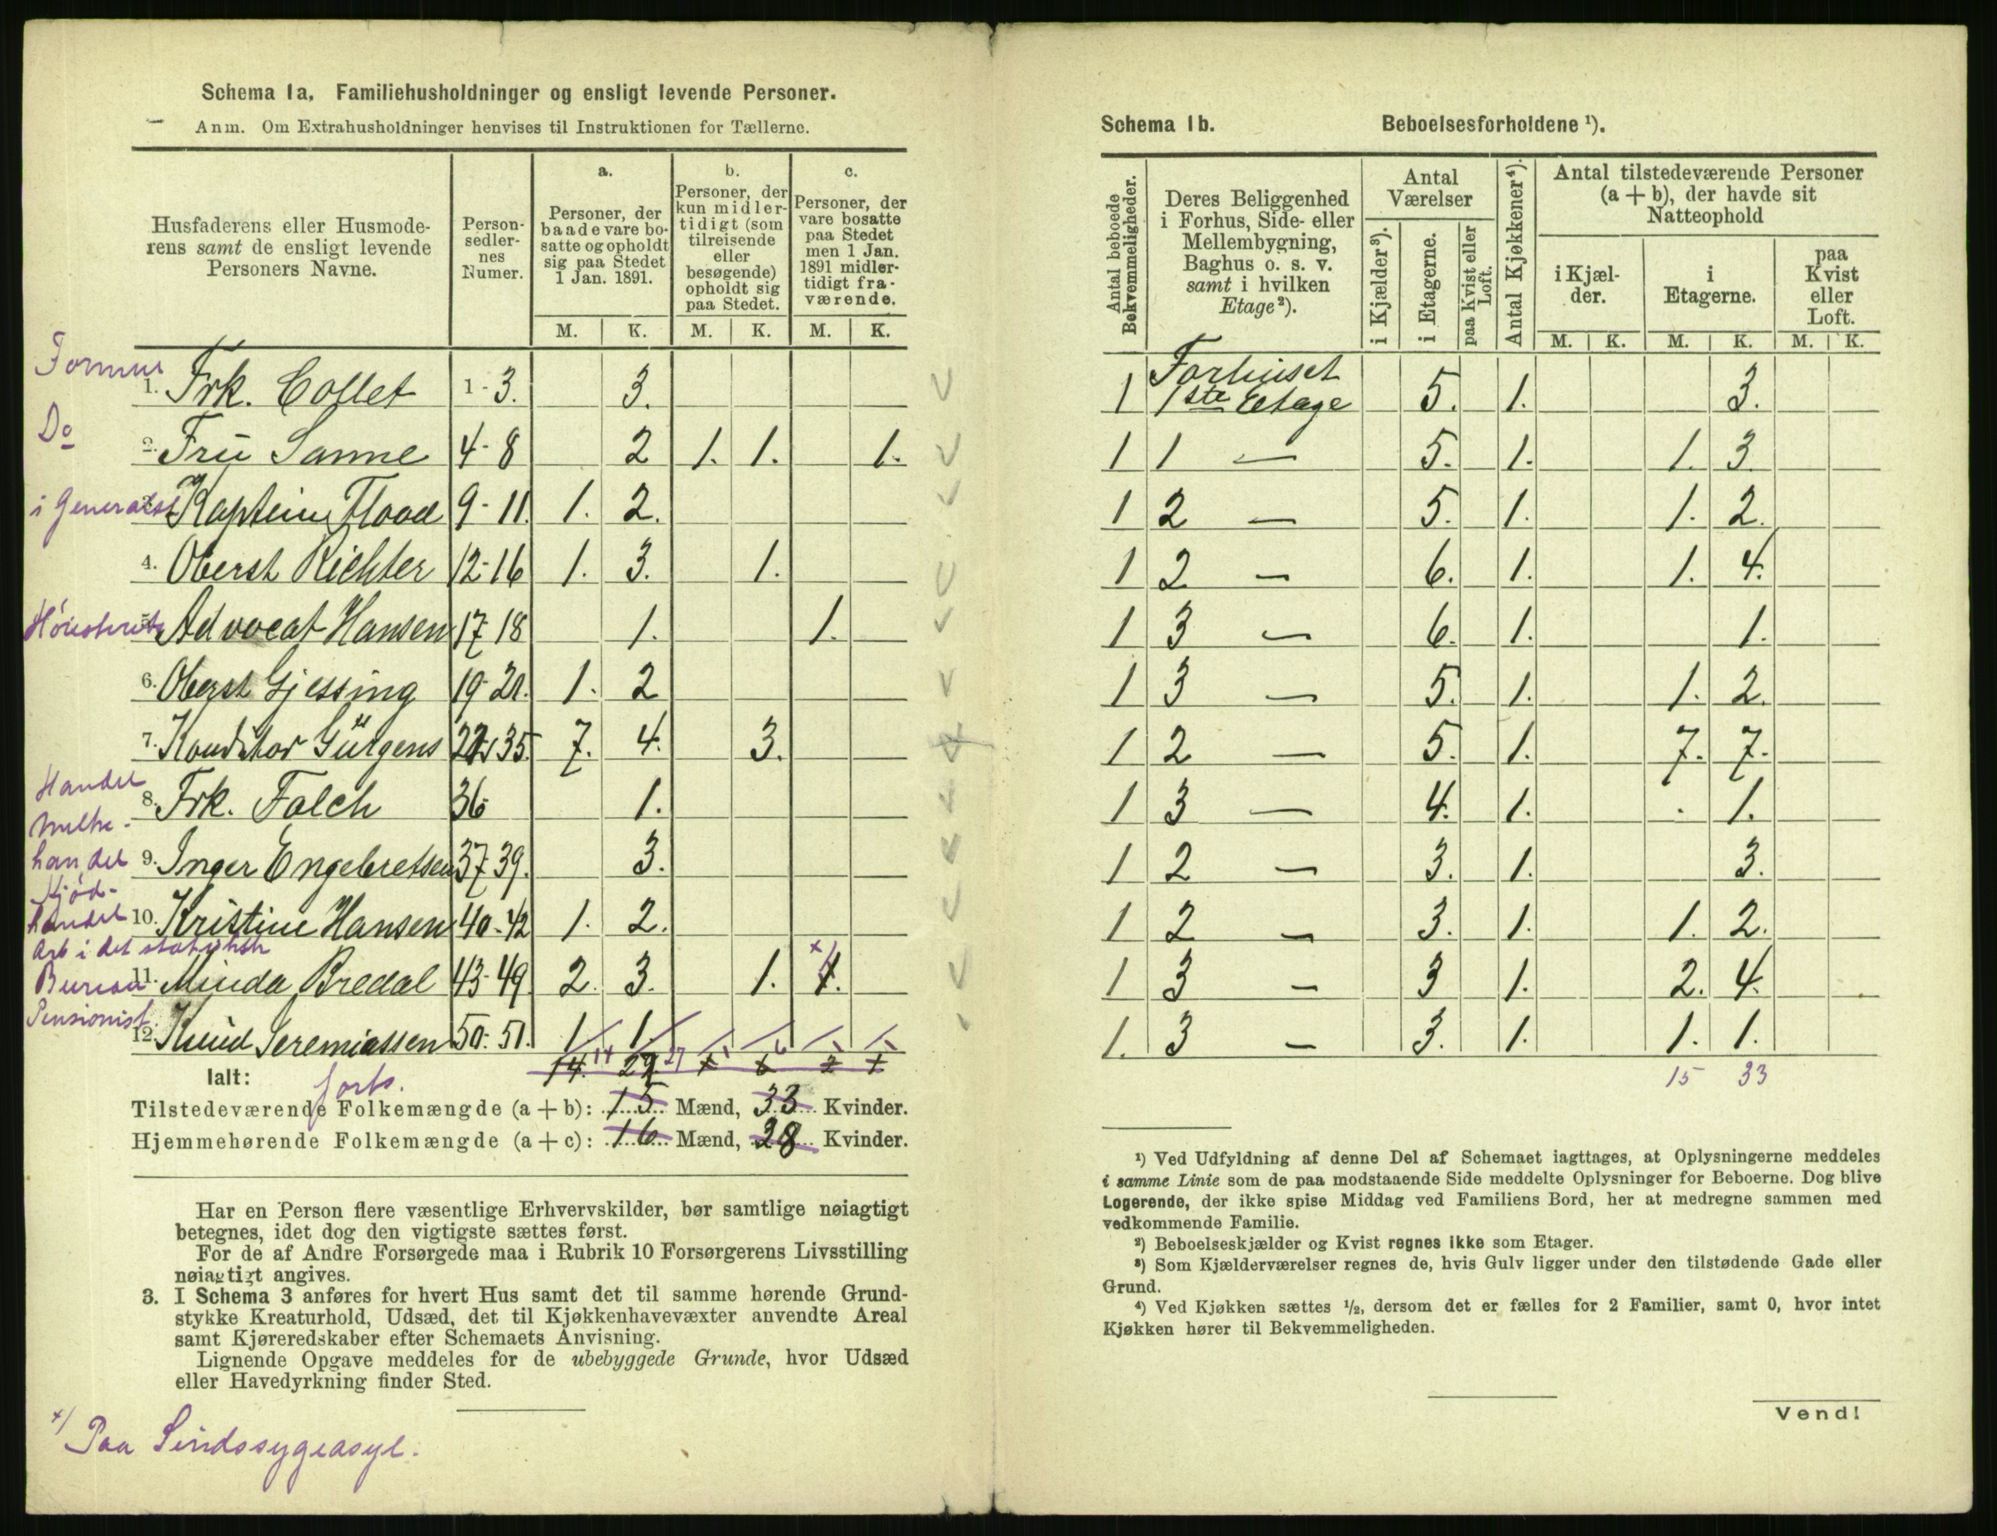 Schema 1a. Familiehusholdninger og ensligt levende Personer.
Anm. Om Extrahusholdninger henvises til Instruktionen for Tællerne.
Husfaderens eller Husmoderens samt de ensligt levende Personers Navne.
Personsedlernes Numer.
a.
Personer, der baade vare bosatte og opholdt sig paa Stedet 1 Jan. 1891.
b.
Personer, der kun midlertidigt (som tilreisende eller besøgende) opholdt sig paa Stedet.
c.
Personer, der vare bosatte paa Stedet men 1 Jan. 1891 midlertidigt fraværende.
M. K. M. K. M. K.
Formue
1. Frk. Collet 1-3. 3.
Do
2. Fru Sanne 4-8 2 1. 1. 1.
i Generalst
Kaptein Flood 9-11. 1. 2.
4. Oberst Richter 12-16 1. 3. 1.
Advocat Hansen 17-18 1. 1.
6. Oberst Gjessing 19-21. 1. 2
7. Konditor Gürgens 22-35 7. 4. 3.
Handel
8. Frk. Falch 36 1.
Melke-
handel
9. Inger Engebretsen 37-39. 3.
Kjød-
handel
10. Kristine Hansen 40-42 1. 2.
Arb i det statistiske
Bureau
11. Minda Bredal 43-49 2. 3. 1. x) 1.
Pensionist.
12. Knud Jeremiassen 50-51. 1 1.
Ialt: 14. 14 27 1 6 2 1
forts.
Tilstedeværende Folkemængde (a + b): 15 Mænd, 33 Kvinder.
Hjemmehørende Folkemængde (a + c): 16 Mænd, 28 Kvinder.
Har en Person flere væsentlige Erhvervskilder, bør samtlige nøiagtigt
betegnes, idet dog den vigtigste sættes først.
For de af Andre Forsørgede maa i Rubrik 10 Forsørgerens Livsstilling
nøiagtigt angives.
3. I Schema 3 anføres for hvert Hus samt det til samme hørende Grund-
stykke Kreaturhold, Udsæd, det til Kjøkkenhavevæxter anvendte Areal
samt Kjøreredskaber efter Schemaets Anvisning.
Lignende Opgave meddeles for de ubebyggede Grunde, hvor Udsæd
eller Havedyrkning finder Sted.
x) Paa Sindssygeasyl.
Schema 1b. Beboelsesforholdene ¹).
Antal beboede Bekvemmeligheder.
Deres Beliggenhed i Forhus, Side- eller Mellembygning, Baghus o. s. v. samt i hvilken Etage²).
Antal Værelser
i Kjælder³).
i Etagerne.
paa Kvist eller Loft.
Antal Kjøkkener⁴).
Antal tilstedeværende Personer (a + b), der havde sit Natteophold
i Kjælder.
i Etagerne.
paa Kvist eller Loft.
M. K. M. K. M. K.
Forhuset
1 1ste Etage 5. 1. 3.
1 1 — 5. 1. 1. 3.
1 2 — 5. 1. 1. 2.
1 2 — 6. 1. 1. 4.
1 3 — 6. 1. 1.
1 3 — 5. 1. 1. 2.
1 2 — 5. 1. 7. 7.
1 3 — 4. 1. 1.
1 2 — 3. 1. 3.
1 2 — 3. 1. 1. 2.
1 3 — 3 1. 2. 4.
1. 3 — 3. 1. 1. 1.
15 33
¹) Ved Udfyldning af denne Del af Schemaet iagttages, at Oplysningerne meddeles
i samme Linie som de paa modstaaende Side meddelte Oplysninger for Beboerne. Dog blive
Logerende, der ikke spise Middag ved Familiens Bord, her at medregne sammen med
vedkommende Familie.
²) Beboelseskjælder og Kvist regnes ikke som Etager.
³) Som Kjælderværelser regnes de, hvis Gulv ligger under den tilstødende Gade eller
Grund.
⁴) Ved Kjøkken sættes ½, dersom det er fælles for 2 Familier, samt 0, hvor intet
Kjøkken hører til Bekvemmeligheden.
Vend!